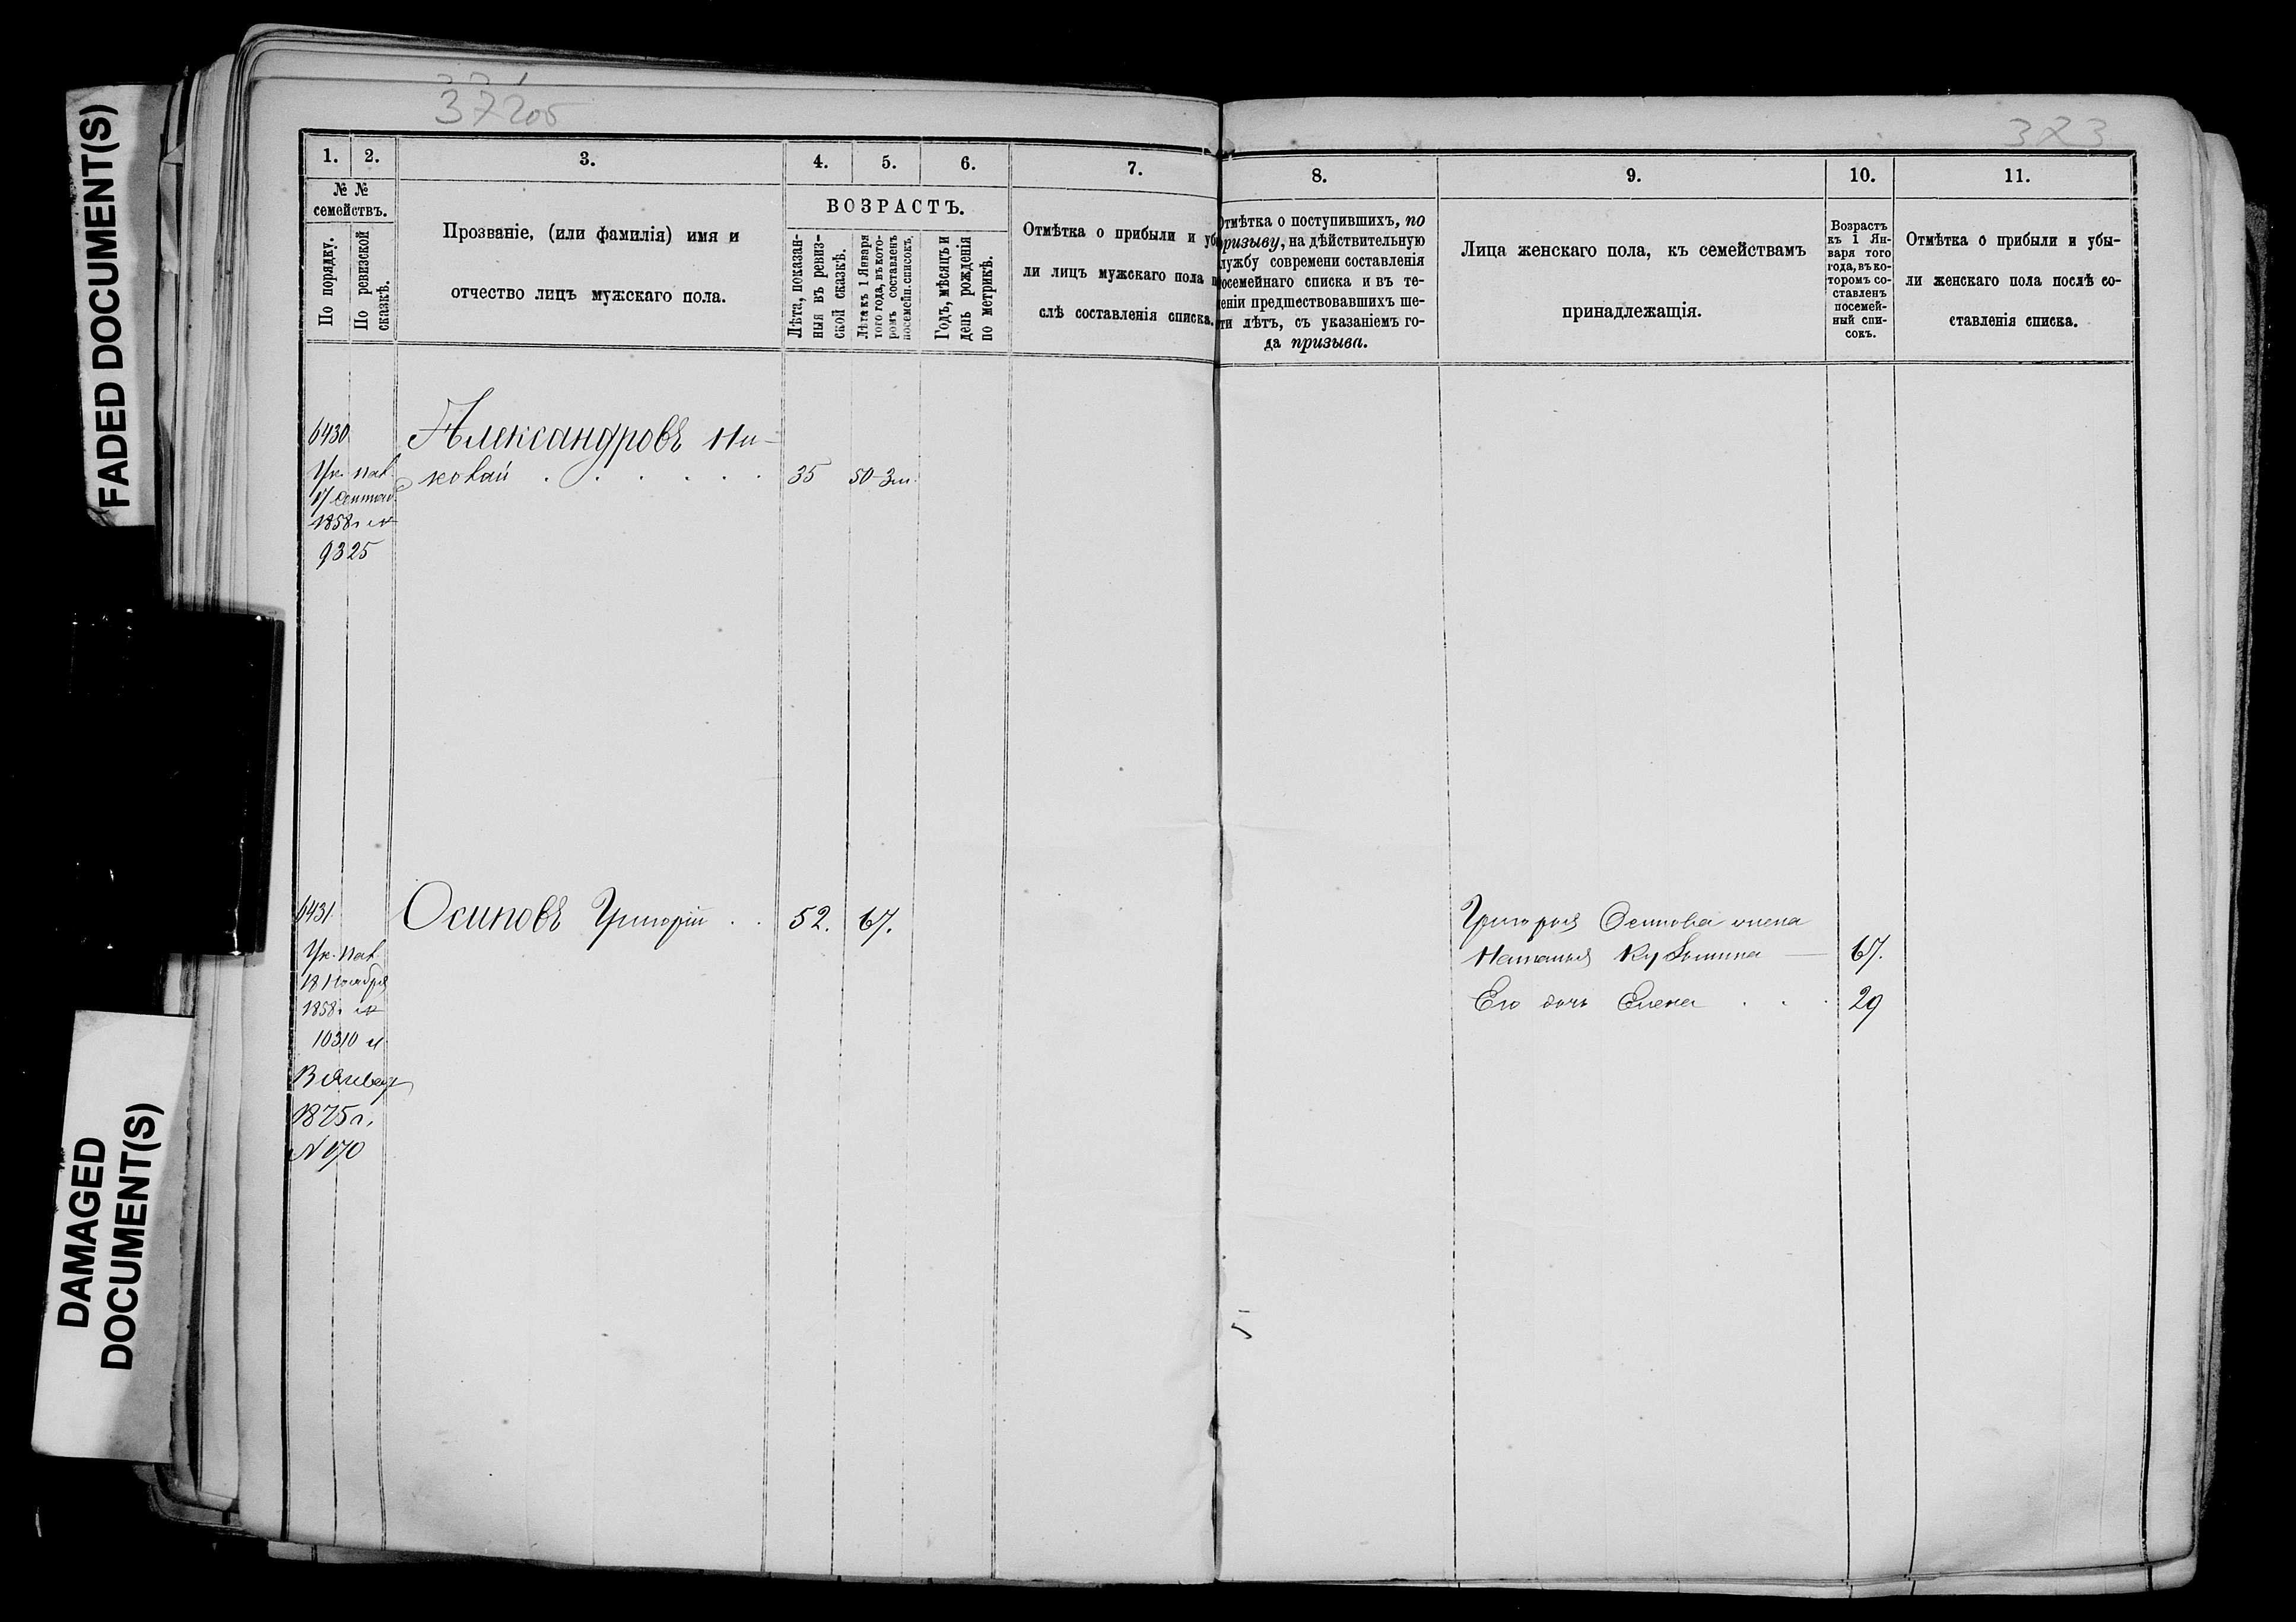 FAADED DOCUMENT(S)
DAMAGED
DOCUMENT(S)
372об
373
1.
2.
3.
4.
5.
6.
7.
8.
9.
10.
11.
№ №
семействъ.
По порядку.
По ревизской
сказкѣ.
Прозваніе, (или фамилія) имя и
отчество лицъ мужскаго пола.
ВОЗРАСТЪ.
Лѣта, показан-
ныя въ ревиз-
ской сказкѣ.
Лѣта къ 1 Января
того года, въ кото-
ромъ составленъ
посемейн. списокъ.
Годъ, мѣсяцъ и
день рожденія
по метрикѣ.
Отмѣтка о прибыли и уб
ли лицъ мужскаго пола п
слѣ составленія списка.
Отмѣтка о поступившихъ, по
призыву, на дѣйствительную
лужбу современи составленія
посемейнаго списка и въ те-
еніи предшествовавшихъ ше-
ти лѣтъ, съ указаніемъ го-
да призыва.
Лица женскаго пола, къ семействамъ
принадлежащія.
Возрастъ
къ 1 Ян-
варя того
года, въ ко-
торомъ со-
ставленъ
посемей-
ный спи-
сокъ.
Отмѣтка о прибыли и убы-
ли женскаго пола послѣ со-
ставленія списка.
6430
Александровъ Ни-
колай 35 50-3м.
Ук. пал.
17 Сентяб.
1858г №
9325
6431
Осиповъ Григорій 52. 67.
Ук. пал.
18 Ноября
1858г №
10310 и
13 Январ
1875г.
№ 170
Григорія Осипова жена
Наталья Кузьмина 67.
Его дочь Елена 29